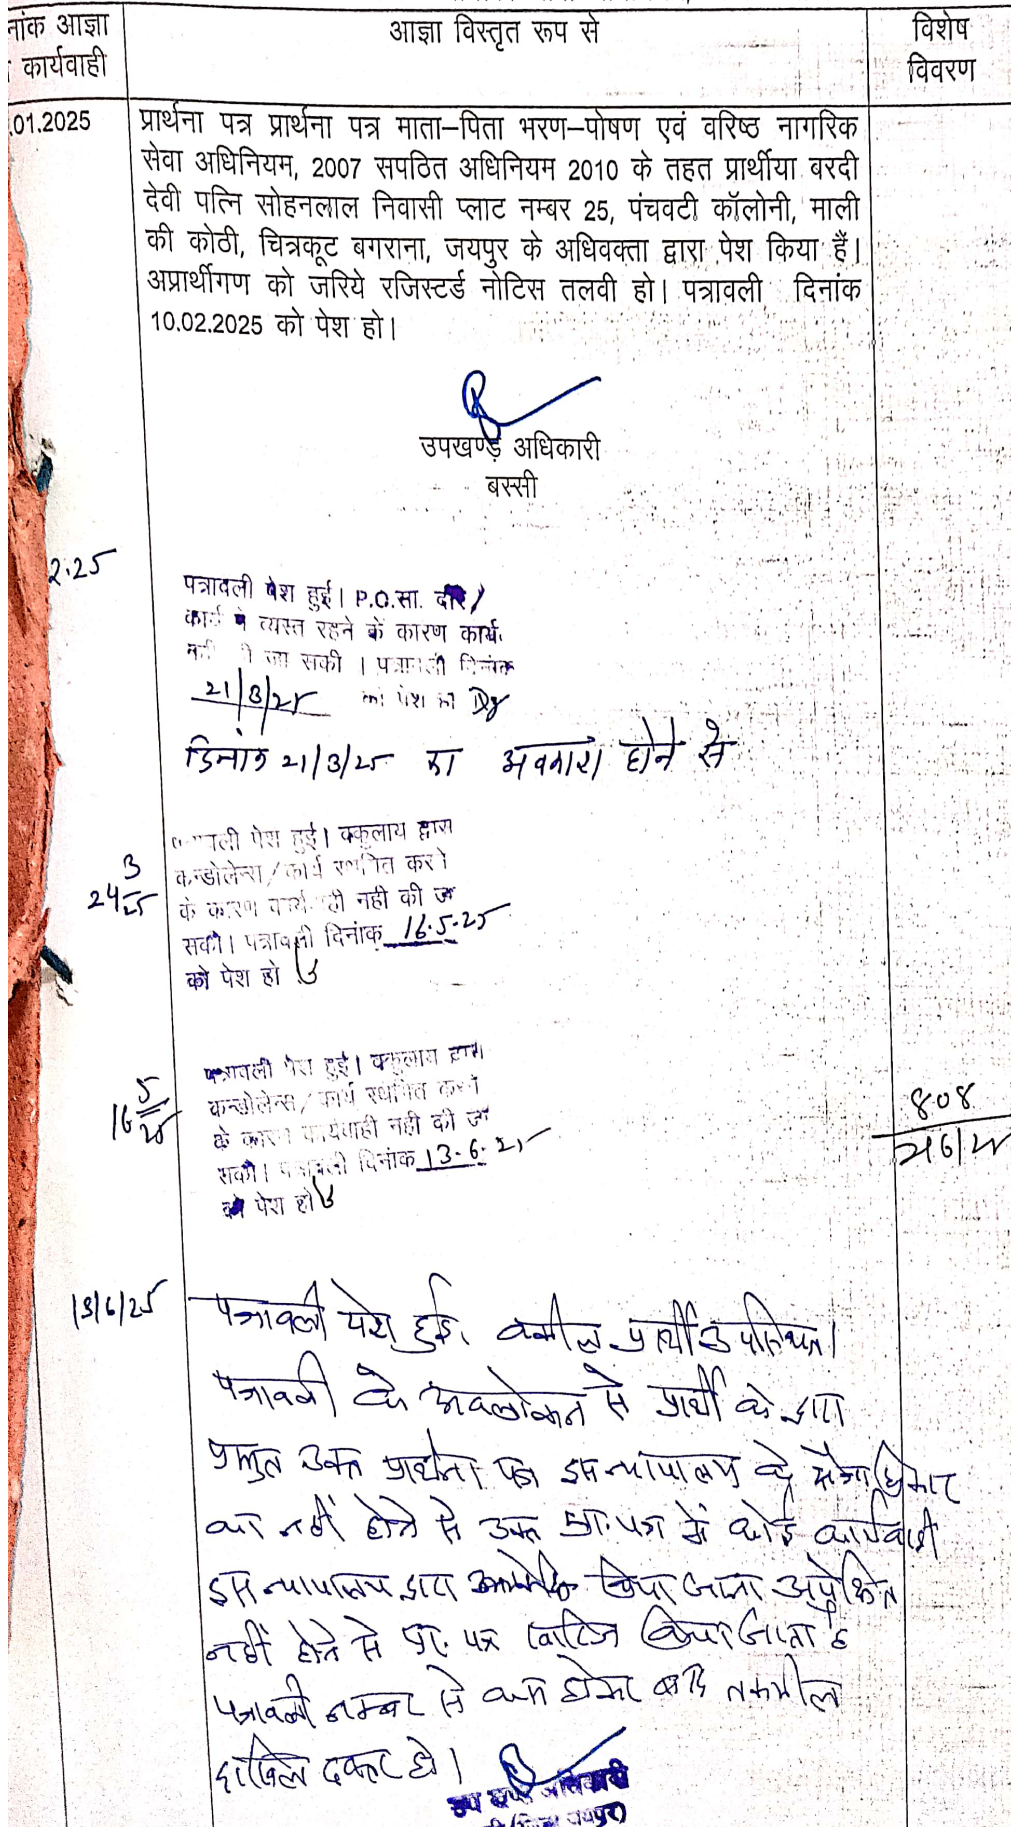 नांक आज्ञा
कार्यवाही
आज्ञा विस्तृत रूप से
विशेष
विवरण
.01.2025
प्रार्थना पत्र प्रार्थना पत्र माता–पिता भरण–पोषण एवं वरिष्ठ नागरिक
सेवा अधिनियम, 2007 सपठित अधिनियम 2010 के तहत प्रार्थीया बरदी
देवी पत्नि सोहनलाल निवासी प्लाट नम्बर 25, पंचवटी कॉलोनी, माली
की कोठी, चित्रकूट बगराना, जयपुर के अधिवक्ता द्वारा पेश किया हैं।
अप्रार्थीगण को जरिये रजिस्टर्ड नोटिस तलवी हो। पत्रावली दिनांक
10.02.2025 को पेश हो।
उपखण्ड़ अधिकारी
बस्सी
2.25
पत्रावली पेश हुई। P.O.सा.
कार्य में व्यस्त रहने के कारण कार्य.
जा सकी । पत्रावली दिनांक
21/3/25 को पेश हो
दिनांक 21/3/25 का अवकाश होने से
24 3/25
पत्रावली पेश हुई। वकुलाय द्वारा
कन्डोलेन्स/कार्य स्थगित करने
के कारण कार्यवाही नही की जा
सकी। पत्रावली दिनांक 16.5.25
को पेश हो
16 5/25
पत्रावली पेश हुई। वकुलाय द्वारा
कन्डोलेन्स/कार्य स्थगित करने
के कारण कार्यवाही नही की जा
सकी। पत्रावली दिनांक 13.6.25
को पेश हो
808
13/6/25
पत्रावली पेश हुई। वकील प्रार्थी उपस्थित।
पत्रावली के अवलोकन से प्रार्थी के द्वारा
प्रस्तुत उक्त प्रार्थना पत्र इस न्यायालय के क्षेत्राधिकार
का नहीं होने से उक्त प्रा. पत्र में कोई कार्यवाही
इस न्यायालय द्वारा किया जाना अपेक्षित
नहीं होने से प्रा. पत्र खारिज किया जाता है
पत्रावली नम्बर से कम होकर बाद तकमील
दाखिल दफ्तर हो।
उप खण्ड अधिकारी
जयपुर)